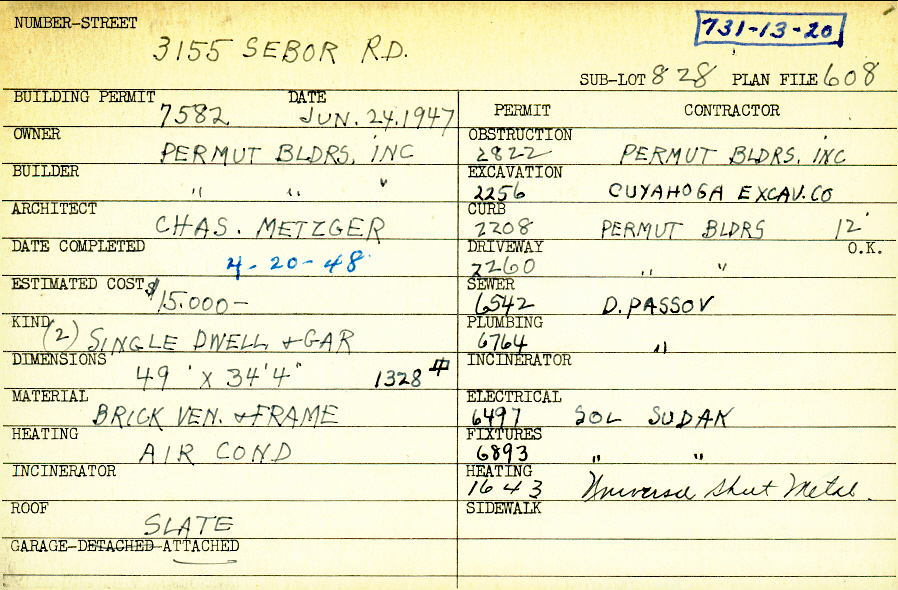 NUMBER-STREET
3155 SEBOR RD.
731-13-20
SUB-LOT 828 PLAN FILE 608
BUILDING PERMIT 7582 DATE JUN. 24. 1947
OWNER PERMUT BLDRS, INC
BUILDER " " "
ARCHITECT CHAS. METZGER
DATE COMPLETED 4-20-48
ESTIMATED COST $15.000-
KIND (2) SINGLE DWELL + GAR
DIMENSIONS 49' X 34'4" 1328 #
MATERIAL BRICK VEN. + FRAME
HEATING AIR COND
INCINERATOR
ROOF SLATE
GARAGE-DETACHED-ATTACHED
PERMIT CONTRACTOR
OBSTRUCTION 2822 PERMUT BLDRS. INC
EXCAVATION 2256 CUYAHOGA EXCAV. CO
CURB 2208 PERMUT BLDRS 12'
DRIVEWAY 2260 " " O.K.
SEWER 6542 D. PASSOV
PLUMBING 6764 "
INCINERATOR
ELECTRICAL 6497 SOL SUDAK
FIXTURES 6893 " "
HEATING 1643 Universal Sheet Metal.
SIDEWALK